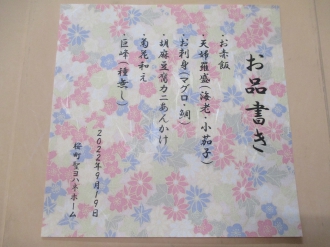 お品書き
・お赤飯
・天婦羅盛(海老・小茄子)
・お刺身(マグロ・鯛)
・胡麻豆腐カニあんかけ
・菊花和え
・巨峰(種無し)
2022年9月19日
桜町聖ヨハネホーム